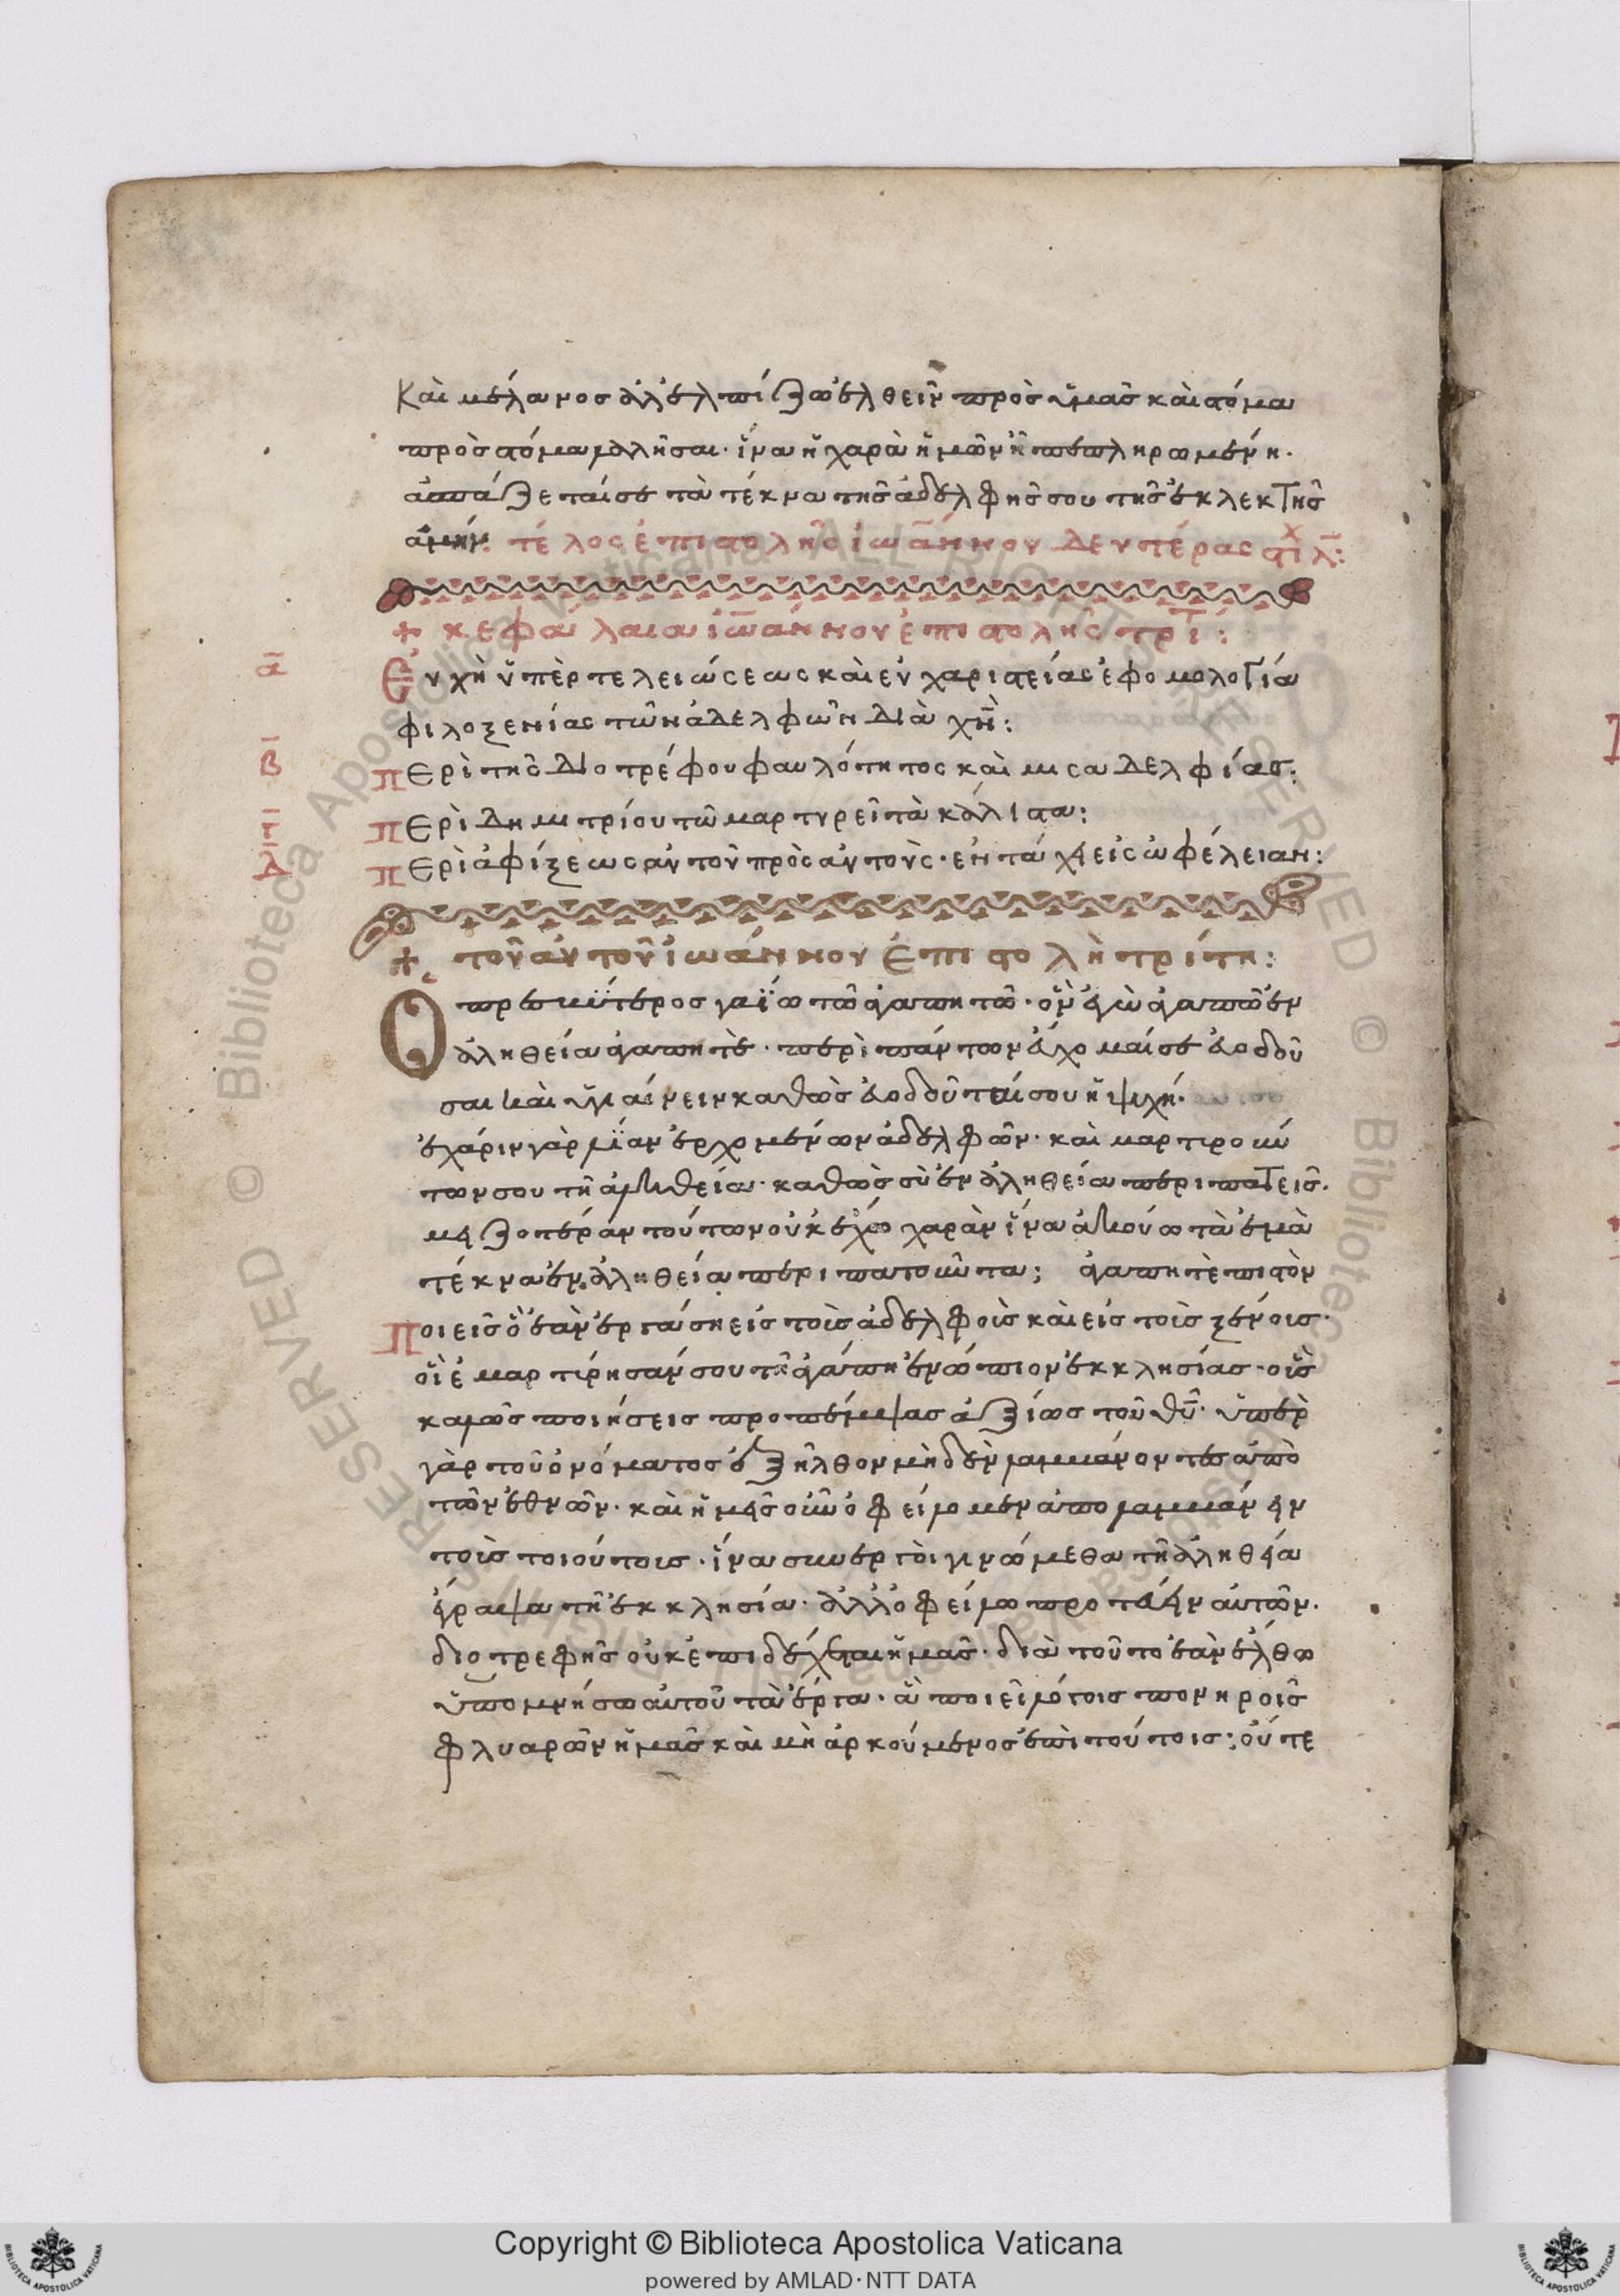 Καὶ μέλανος ἀλ' ἐλπίζω ἐλθεῖν πρὸς ὑμᾶς καὶ στόμα
πρὸς στόμα λαλῆσαι· ἵνα ἡ χαρὰ ἡμῶν ἦ πεπληρωμένη·
ἀσπάζεταί σε τὰ τέκνα τῆς ἀδελφῆς σου τῆς ἐκλεκτῆς
ἀμήν: τέλος ἐπιστολῆς ἰωάννου δευτέρας στιχ λ̅:
+ κεφάλαια ἰωάννου ἐπιστολῆς τρί:
α̅ Εὐχὴ ὑπὲρ τελειώσεως καὶ εὐχαριστείας ἐφ ομολογία
φιλοξενίας τῶν ἀδελφῶν διὰ χ̅ν̅:
β̅ Περὶ τῆς διοτρέφου φαυλότητος καὶ μισαδελφίας:
γ̅ Περὶ δημιτρίου τῶ μαρτυρεῖ τὰ κάλιστα:
δ̅ Περὶ ἀφίξεως αὐτοῦ πρὸς αὐτοὺς· ἐν τάχει εἰς ὠφέλειαν:
+ τοῦ αὐτοῦ ἰωάννου ἐπιστολὴ τρίτη:
Ὁ πρεσβύτερος γαΐω τῶ ἀγαπητῶ· ὃν ἐγὼ ἀγαπῶ ἐν
ἀληθεία ἀγαπητὲ· περὶ πάντων εὔχομαί σε εὐοδοῦ
σαι καὶ ὑγιαίνειν καθὼς εὐοδοῦταί σου ἡ ψυχή·
ἐχάριν γὰρ λίαν ἐρχομένων ἀδελφῶν· καὶ μαρτιρούν
των σου τῆ ἀληθεία· καθὼς σὺ ἐν ἀληθεία περιπατεῖς·
μειζοτέραν τούτων οὐκ ἔχω χαρὰν ἵνα ἀκούω τὰ ἐμὰ
τέκνα ἐν ἀληθεία περιπατοῦντα; ἀγαπητὲ πιστὸν
Ποιεῖς ὃ ἐὰν ἐργάση εἰς τοὶς ἀδελφοὶς καὶ εἰς τοὶς ξένοις·
οἳ ἐμαρτίρησάν σου τῆ ἀγάπη ἐνώπιον ἐκκλησίας· οὓς
καλῶς ποιήσεις προπέμψας ἀξίως τοῦ θ̅υ̅· ὑπὲρ
γὰρ τοῦ ὀνόματος ἐξῆλθον μηδὲν λαμβάνοντες ἀπὸ
τῶν ἐθνῶν· καὶ ἡμεῖς οὖν ὀφείλομεν ἀπολαμβάνειν
τοὶς τοιούτοις· ἵνα συνεργοὶ γινώμεθα τῆ ἀληθεία
ἔγραψα τῆ ἐκκλησία· ἀλλ' ὁ φείλω προτεύειν αὐτῶν·
διοτρεφὴς οὐκ ἐπιδέχεται ἡμᾶς· διὰ τοῦτο ἐὰν ἔλθω
ὑπομνήσω αὐτοῦ τὰ ἔργα· ἃ ποιεῖ λόγοις πονηροῖς
φλυαρῶν ἡμᾶς καὶ μὴ ἀρκούμενος ἐπὶ τούτοις; οὔτε
Copyright © Biblioteca Apostolica Vaticana
powered by AMLAD·NTT DATA